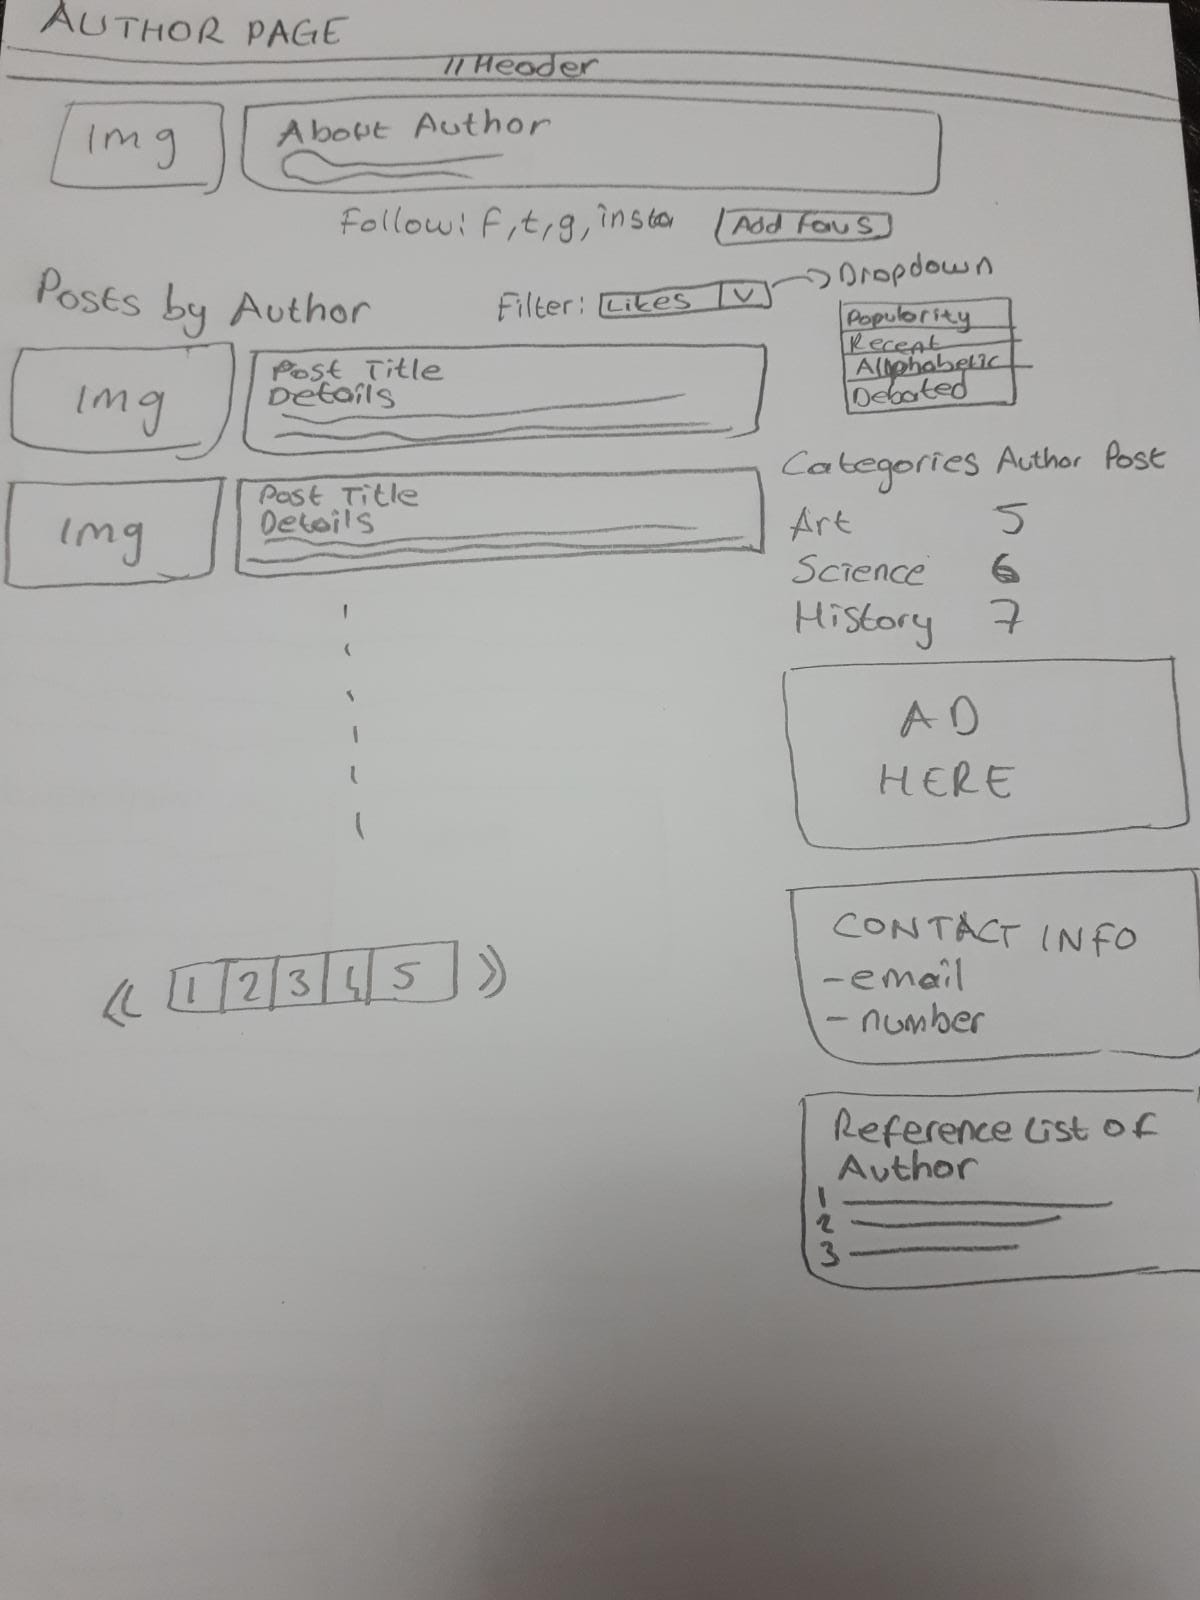 AUTHOR PAGE
// Header
Img
About Author
Follow: f, t, g, insta
Add Favs
Posts by Author
Filter: Likes V
Dropdown
Popularity
Recent
Allphabetic
Debated
Img
Post Title
Details
Img
Post Title
Details
Categories Author Post
Art 5
Science 6
History 7
AD
HERE
CONTACT INFO
- email
- number
Reference List of
Author
1
2
3
« 1 2 3 4 5 »